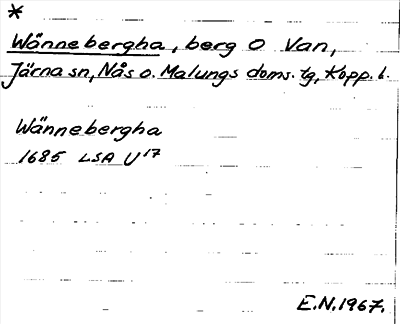 *
Wännebergha, berg O Van,
Järna sn, Nås o. Malungs doms. tg, Kopp. l.
Wännebergha
1685 LSA U17
E.N. 1967.